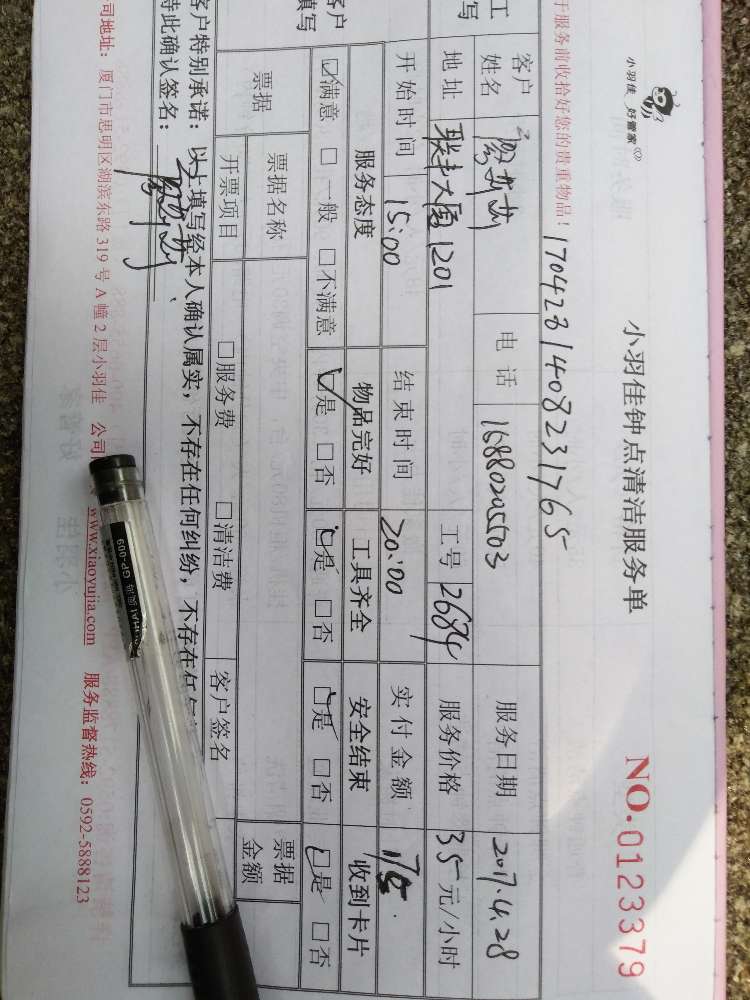 小羽佳 好管家
小羽佳钟点清洁服务单
NO.0123379
于服务前收拾好您的贵重物品!
1704281408231765
工
写
客户
姓名
电话
15880205503
服务日期
2017.4.28
地址
联丰大厦1201
工号
2684
服务价格
35元/小时
开始时间
15:00
结束时间
20:00
实付金额
175.
客户
填写
服务态度
物品完好
工具齐全
安全结束
收到卡片
☑满意 □一般 □不满意
☑是 □否
☑是 □否
☑是 □否
☑是 □否
票据
票据名称
票据
金额
开票项目
□服务费 □清洁费
客户签名
客户特别承诺:以上填写经本人确认属实,不存在任何纠纷,不存在任何
特此确认签名:
司地址:厦门市思明区湖滨东路319号A幢2层小羽佳 公司
www.xiaoyujia.com
服务监督热线:0592-5888123
GP-009